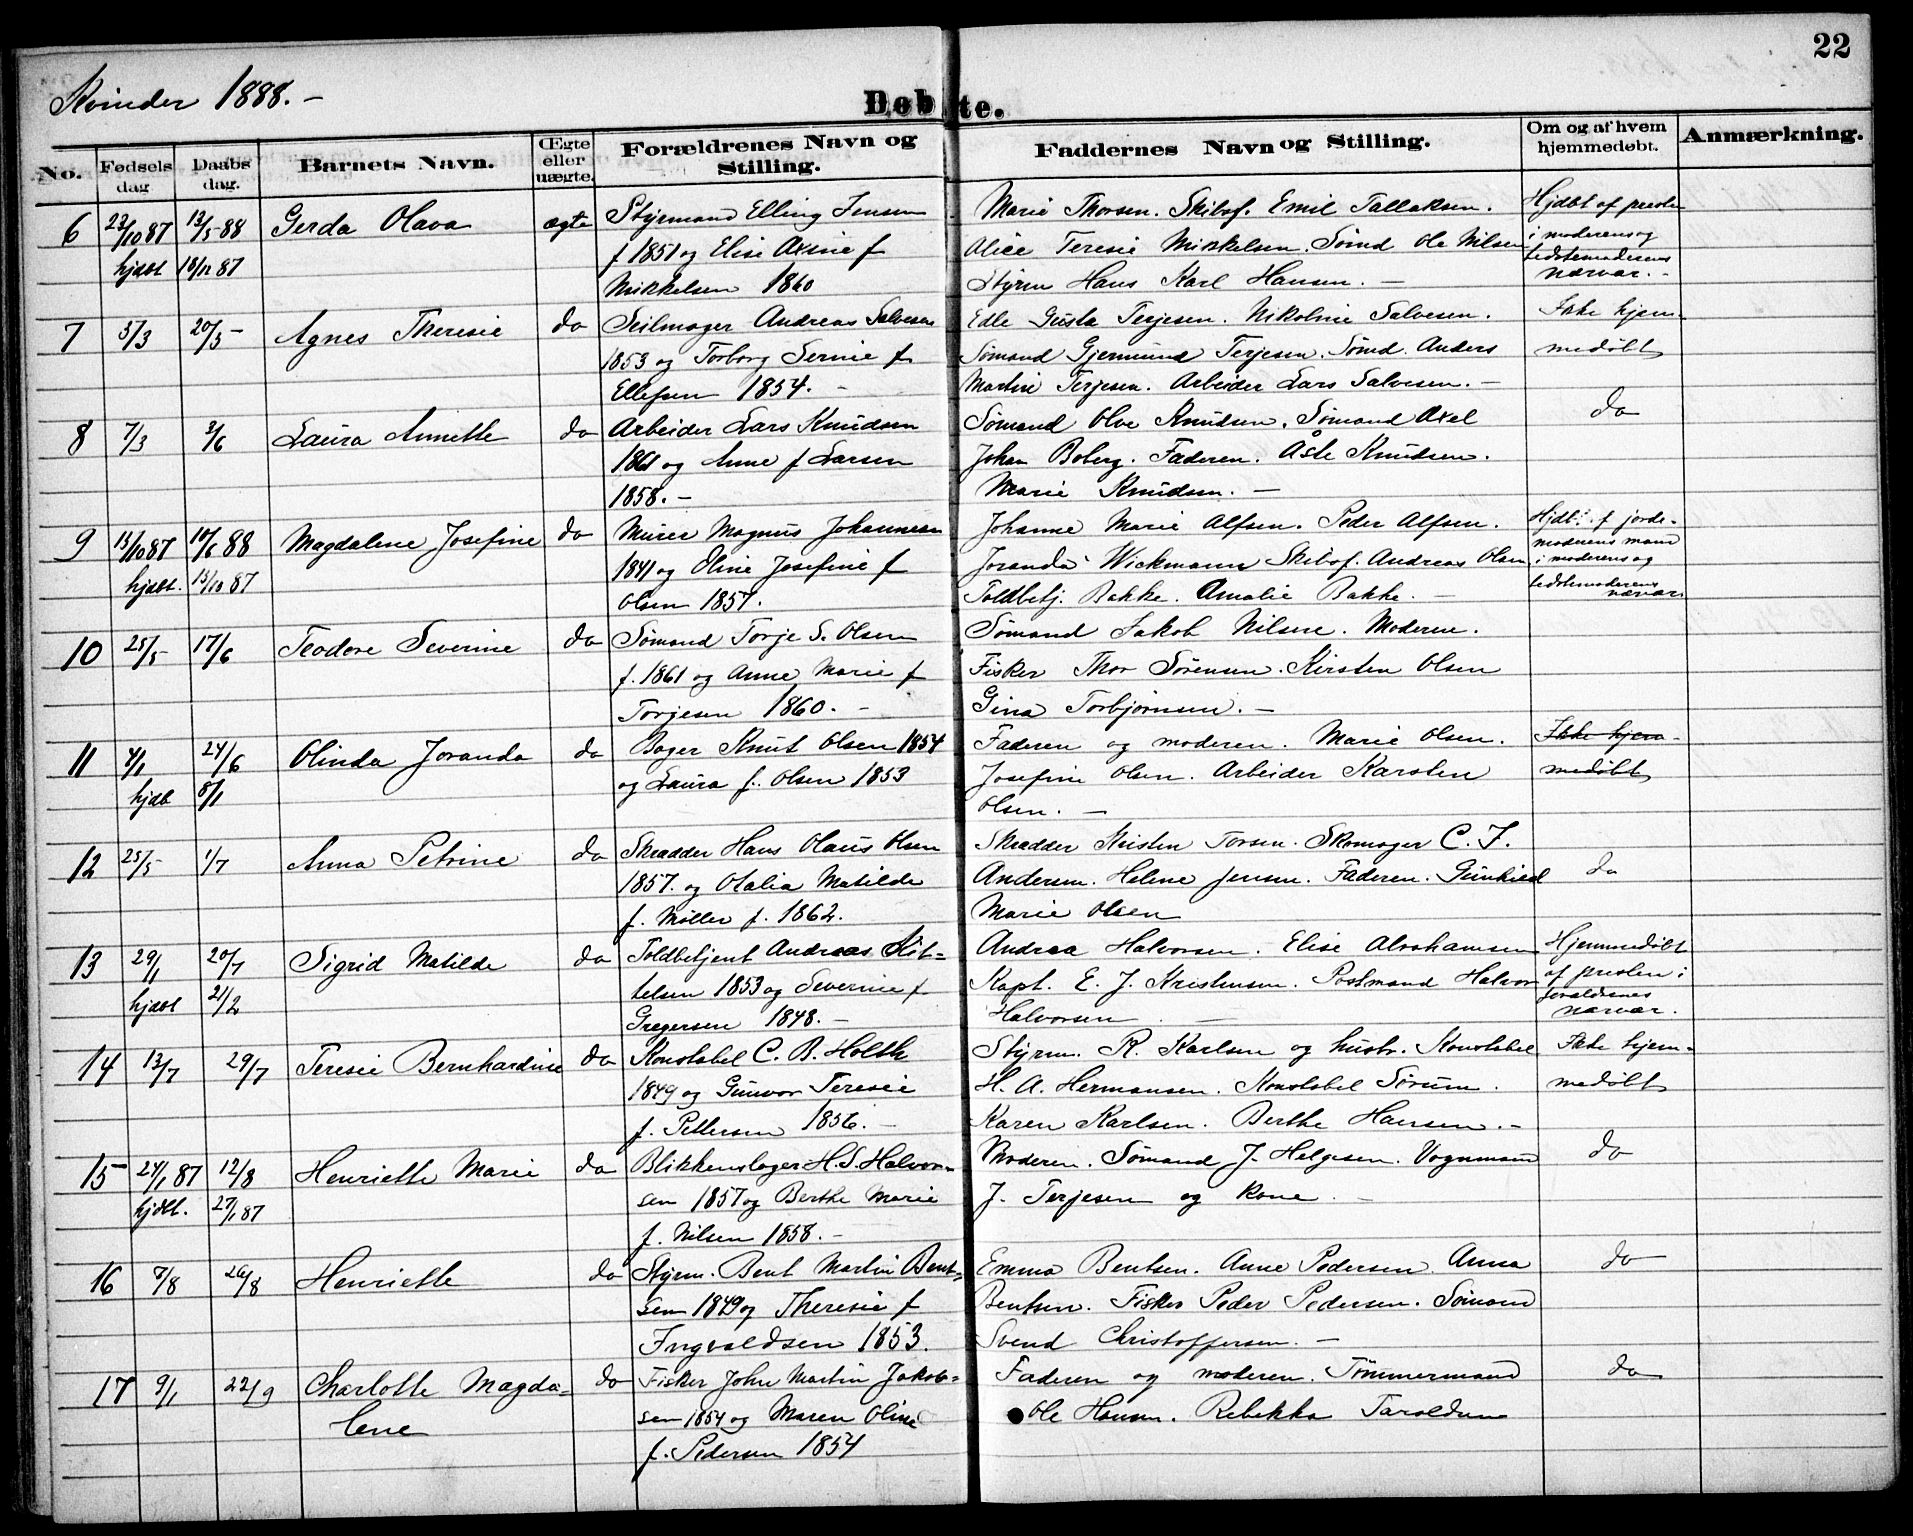 22
Kvinder 1888. –
Døbte.
No. Fødselsdag Daabsdag. Barnets Navn. Ægte eller uægte. Forældrenes Navn og Stilling. Faddernes Navn og Stilling. Om og af hvem hjemmedøbt. Anmærkning.
6 23/10 87 13/5 88 Gerda Olava ægte Styrmand Elling Jensen Marie Thorsen. Skibsf. Emil Tallaksen. Hjdbt af presten
f 1851 og Elise Axine f Alice Teresie Mikkelsen. Sømd Ole Nilsen i moderens og
hjdbt 10/12 87 Mikkelsen 1860 Styrm Hans Karl Hansen. – bedstemoderens
nærvær. –
7 5/3 20/5 – Agnes Theresie do Seilmager Andreas Salvesen Edle Gusta Terjesen. Nikoline Salvesen. Ikke hjem-
1853 og Torborg Serine f Sømand Gjermund Terjesen. Sømd. Anders medøbt
Ellefsen 1854. – Martin Terjesen. Arbeider Lars Salvesen. –
8 7/3 3/6 Laura Annette do Arbeider Lars Knudsen Sømand Olve Knudsen. Sømand Axel do
1861 og Anne f Larsen Johan Boberg. Faderen. Åste Knudsen.
1858. – Marie Knudsen. –
9 15/10 87 10/6 88 Magdalene Josefine do Murer Magnus Johannesen Johanne Marie Alfsen. Peder Alfsen. Hjdbt. f jorde-
moderens mand
hjdbt. 15/10 87 1841 og Oline Josefine f Joranda Wickmann Skibsf. Andreas Olsen i moderens og
Olsen 1857. Toldbetj. Bakke. Amalie Bakke. – bedstemoderens
nærvær
10 25/5 17/6 Teodore Severine do Sømand Torje S. Olsen Sømand Jakob Nilsen. Moderen.
f. 1861 og Anne Marie f Fisker Thor Sørensen. Kirsten Olsen
Torjesen 1860. – Gina Torbjørnsen. –
11 4/1 24/6 Olinda Joranda do Bager Knut Olsen 1854 Faderen og moderen. Marie Olsen. Ikke hjem-
hjdb 8/1 og Laura f. Olsen 1853 Josefine Olsen. Arbeider Karsten medøbt
Olsen. –
12 25/5 1/7 Anna Petrine do Skrædder Hans Olaus Olsen Skrædder Kristen Torsen. Skomager C. J.
1857. og Otalia Matilde Andersen. Helene Jensen. Faderen. Gunhild do
f. Møller f. 1862. Marie Olsen
13 29/1 20/7 Sigrid Matilde do Toldbetjent Andreas Kit- Andrea Halvorsen. Elise Abrahamsen Hjemmedøbt
hjdbt 21/2 telsen 1853 og Severine f Kapt. E. J. Kristensen. Postmand Halvor af presten i
Gregersen 1848. – Halvorsen. – forældrenes
nærvær.
14 13/7 29/7 Teresie Bernhardine do Konstabel C. B. Holth Styrm. R. Karlsen og hustr. Konstabel Ikke hjem-
1849 og Gunvor Teresie H. A. Hermansen. Konstabel Sørum. medøbt
f. Pettersen 1856. – Karen Karlsen. Berthe Hansen. –
15 24/1 87 12/8 Henriette Marie do Blikkenslager H. S. Halvor- Moderen. Sømand J. Helgesen. Vognmand do
hjdbt. 27/1 87 sen 1857 og Berthe Marie J. Terjesen og kone. –
f. Nilsen 1858. –
16 7/8 26/8 Henriette do Styrm. Bent Martin Bent- Emma Bentsen. Anne Pedersen Anna do
sen 1849 og Theresie f Bentsen. Fisker Peder Pedersen. Sømand
Ingvaldsen 1853. Svend Christoffersen. –
17 9/1 22/9 Charlotte Magda- do Fisker John Martin Jakob- Faderen og moderen. Tømmermand do
lene sen 1854 og Maren Oline Ole Hansen. Rebekka Taraldsen
f. Pedersen 1854